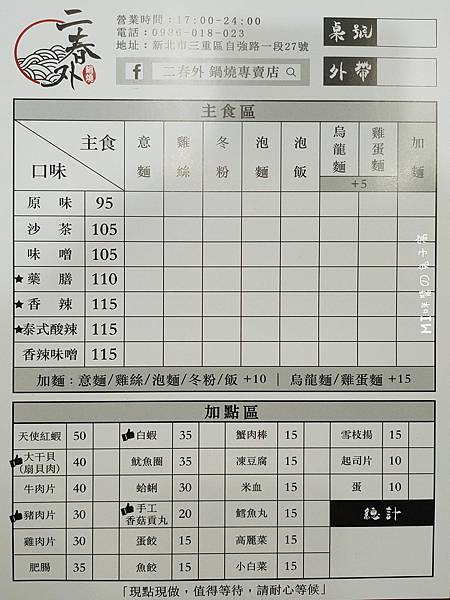 二春外
鍋燒
營業時間：17:00-24:00
電話：0986-018-023
地址：新北市三重區自強路一段27號
f 二春外 鍋燒專賣店
桌號
外帶
主食區
主食 意麵 雞絲 冬粉 泡麵 泡飯 烏龍麵 雞蛋麵 加麵
口味 +5
原味 95
沙茶 105
味噌 105
★藥膳 110
★香辣 115
★泰式酸辣 115
香辣味噌 115
加麵：意麵/雞絲/泡麵/冬粉/飯 +10 | 烏龍麵/雞蛋麵 +15
加點區
天使紅蝦 50 白蝦 35 蟹肉棒 15 雪枝揚 15
大干貝(扇貝肉) 40 魷魚圈 35 凍豆腐 15 起司片 10
牛肉片 40 蛤蜊 30 米血 15 蛋 10
豬肉片 30 手工香菇貢丸 20 鱈魚丸 15 總計
雞肉片 30 蛋餃 15 高麗菜 15
肥腸 35 魚餃 15 小白菜 15
「現點現做，值得等待，請耐心等候」